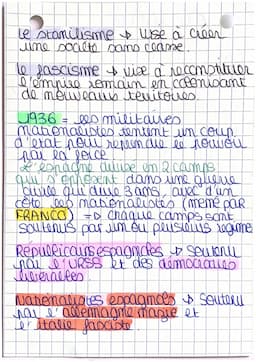 Le stanilisme → vise à créer
une société sans classe.
le fascisme → vise à reconstituer
l'empire romain en colonisant
de nouveaux territoires.
1936 = les militaires
nationalistes tentent un coup
d'état pour reprendre le pouvoir
par la force.
L'espagne divise en 2 camps
qui s'opposent dans une guerre
civile qui dure 3 ans, avec d'un
côté les nationalistes (mené par
FRANCO) => chaque camps sont
soutenus par un ou plusieurs régime
Républicains espagnoles → soutenu
par l'URSS et des démocraties
libérales
Nationalistes espagnols → soutenu
par l'allemagne nazie et
l'italie fasciste